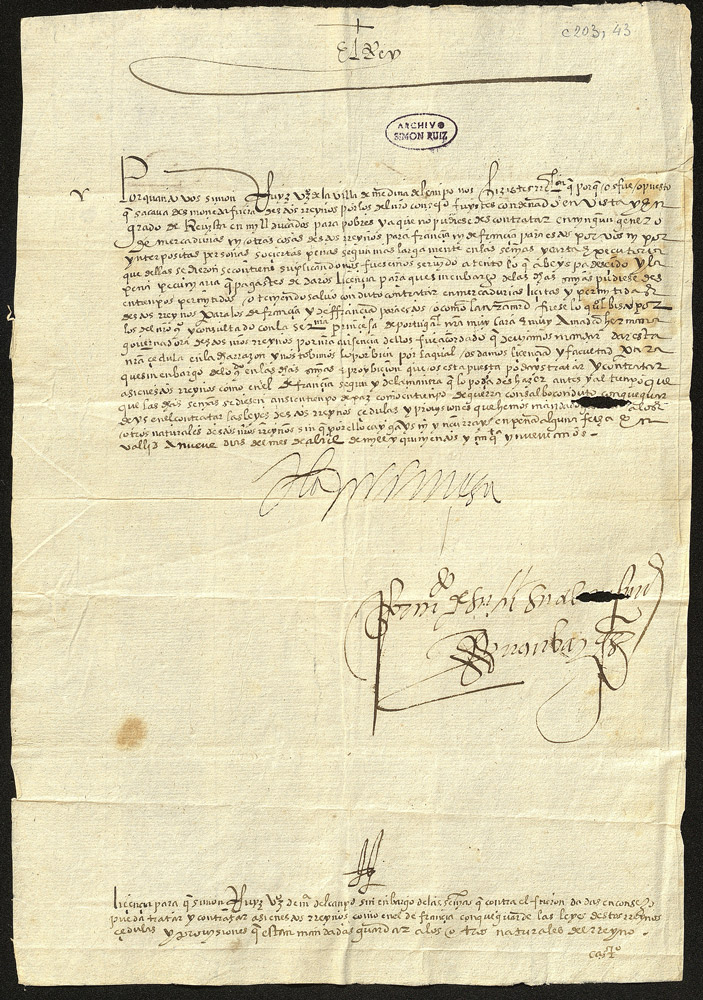 c 203, 43
El Rey
ARCHIVO
SIMON RUIZ
Por quanto vos simon Ruyz vzº de la villa de medina del campo nos hizistes rrelon q porq os fue opuesto
q sacava des moneda fuera destos rreynos por los del nro consejo fuystes condenado en vista y en
grado de Revista en mill ducados para pobres y a que no pudiesedes contratar en ningun genero
de mercadurias ni otras cosas destos rreynos para françia ni de françia para estos por vos ni por
ynterpositas personas so ciertas penas segun mas largamente en las senas y carta executoria
que dellas se dieron se contiene suplicandonos fuesemos servido atento lo q abeys padecido y la
pena pecuniaria q pagastes de daros liçençia para que sin embargo de las dhas senas pudiesedes
en tiempos permitidos o teniendo salvo conduto contratar en mercadurias licitas y permitidas
destos rreynos para los de françia y de françia para estos o como la nra md fuese lo ql visto por
los del nro qº y consultado con la serma prinçesa de portugal nra muy cara e muy amada hermana
governadora destos nros rreynos por mi ausençia dellos fue acordado q deviamos mandar dar esta
nra çedula en la dha razon y nos tobimos lo por bien por la qual os damos liçençia y facultad para
que sin embargo de lo q en las dhas senas e prohibicion que os esta puesta podays tratar y contratar
asi en estos rreynos como en el de françia segun y de la manera q lo podiades hazer antes y al tiempo que
que las dhas senas se diesen ansi en tiempo de paz como en tiempo de guerra con salvo conduto con que guar
deys en el contratar las leyes destos rreynos cedulas y provisiones que hemos mandado a los
otros naturales destos nros rreynos sin q por ello caygays ni yncurrays en pena alguna fecha en
vallid a nueve dias del mes de abril de mill y quinientos y çinqta y nueve años.
La prinçesa
liçençia para q simon Ruyz vzº de mna del campo sin enbargo de las senas q contra el fueron dadas en consejo
pueda tratar y contratar asi en estos rreynos como en el de françia con que guarde las leyes destos rreynos
çedulas y provisiones q estan mandadas guardar a los otros naturales del rreyno.